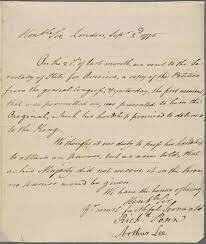 London, Sept. 2d 1775
On the 21st of last month, we sent to the Secre-
tary of State for America, a copy of the Petition
from the general Congress; & yesterday, the first moment
that was permitted us, we presented to him the
Original, which his Lordship promised to deliver
to the King.
We thought it our duty to press his Lordship
to obtain an answer, but we were told, that
as his Majesty did not receive it on the throne,
no answer would be given.
We have the honor of being
Richd. Penn
Arthur Lee